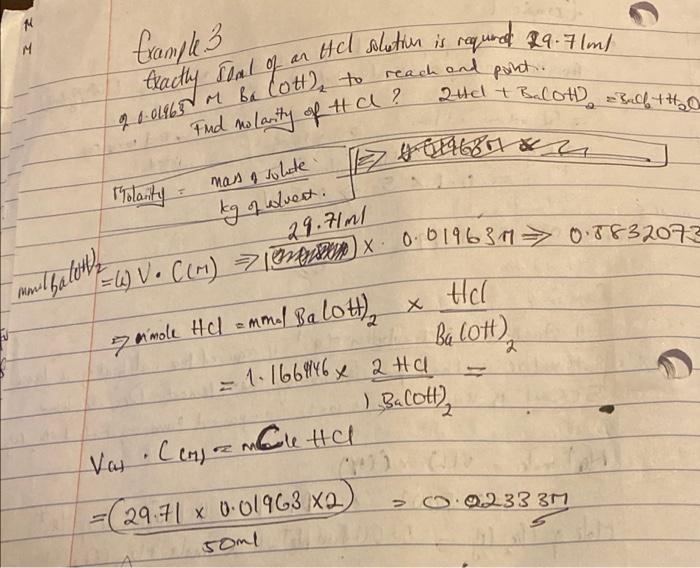 Example 3
Exactly 50ml of an HCl solution is required 29.71ml
of 0.01963 M Ba(OH)₂ to reach end point..
Find molarity of HCl? 2HCl + Ba(OH)₂ = BaCl₂ + H₂O
Molarity = mass of solute
kg of solvent.
29.71ml
mmol Ba(OH)₂ = (L) V · C(M) ⇒ × 0.01963M ⇒ 0.5832073
⇒ mmole HCl = mmol Ba(OH)₂ × HCl
Ba(OH)₂
= 1.1664146 × 2 HCl =
1 Ba(OH)₂
V(L) · C(M) = mole HCl
= (29.71 × 0.01963 × 2) = 0.02333M
50ml